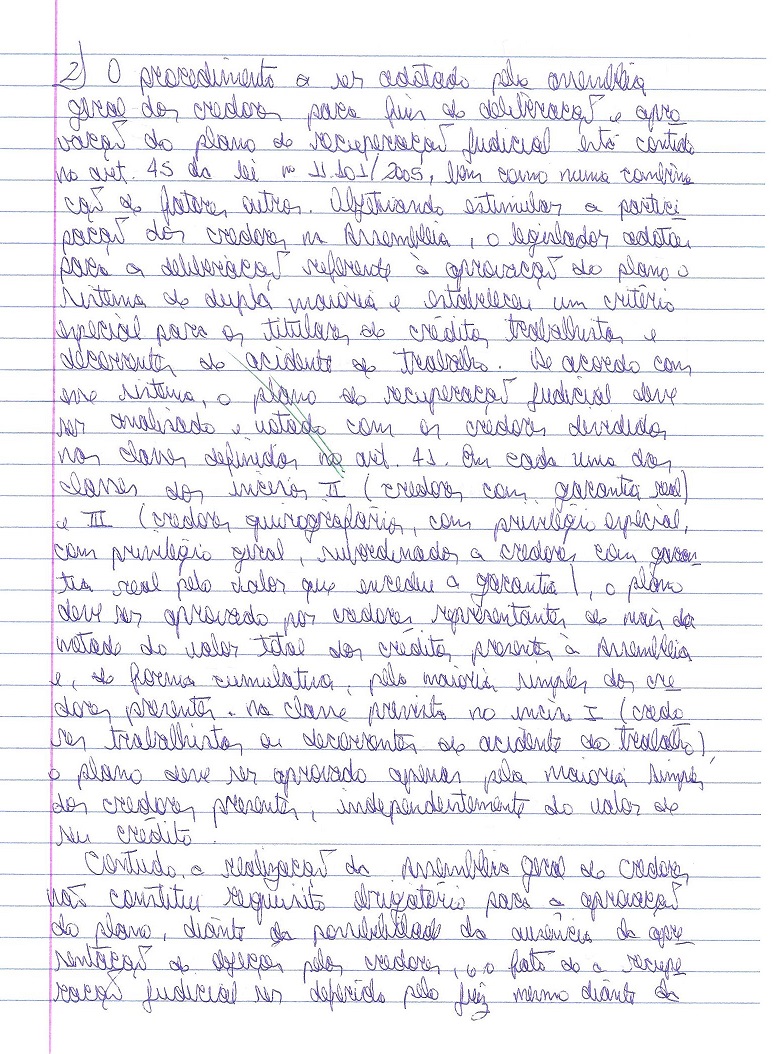 2) O procedimento a ser adotado pela assembléia
geral dos credores para fins de deliberação e apro
vação do plano de recuperação judicial está contido
no art. 45 da lei nº 11.101/2005, bem como numa combina
ção de fatores outros. Objetivando estimular a partici
pação dos credores na Assembléia, o legislador adotou
para a deliberação referente à aprovação do plano o
sistema de dupla maioria e estabeleceu um critério
especial para os titulares de créditos trabalhistas e
decorrentes de acidente de trabalho. De acordo com
esse sistema, o plano de recuperação judicial deve
ser analisado e votado com os credores divididos
nas classes definidas no art. 41. Em cada uma das
classes dos incisos II (credores com garantia real)
e III (credores quirografários, com privilégio especial,
com privilégio geral, subordinados a credores com garan
tia real pelo valor que excedeu a garantia), o plano
deve ser aprovado por credores representantes de mais da
metade do valor total dos créditos presentes à Assembléia
e, de forma cumulativa, pela maioria simples dos cre
dores presentes. Na classe prevista no inciso I (credo
res trabalhistas ou decorrentes de acidente do trabalho),
o plano deve ser aprovado apenas pela maioria simples
dos credores presentes, independentemente do valor de
seu crédito.
Contudo, a realização da Assembléia geral de credores
não constitui requisito obrigatório para a aprovação
do plano, diante da possibilidade da ausência da apre
sentação de objeção pelos credores, e o fato de a recupe
ração judicial ser deferida pelo juiz mesmo diante da